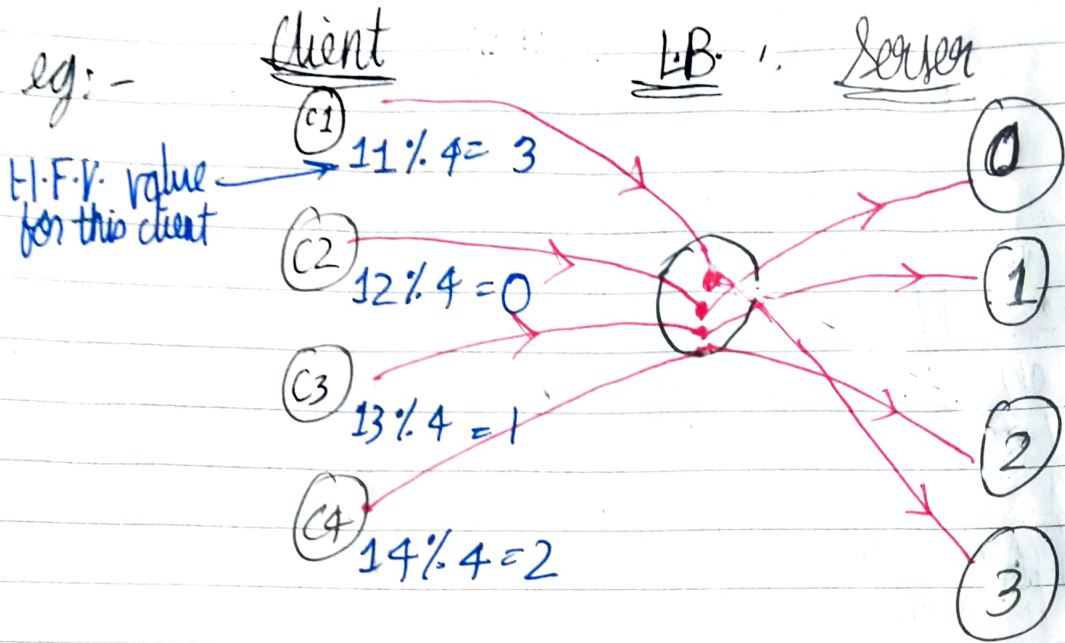 eg:-
Client
L.B.
Server
C1
11 % 4 = 3
H.F.V. value
for this client
C2
12 % 4 = 0
C3
13 % 4 = 1
C4
14 % 4 = 2
0
1
2
3